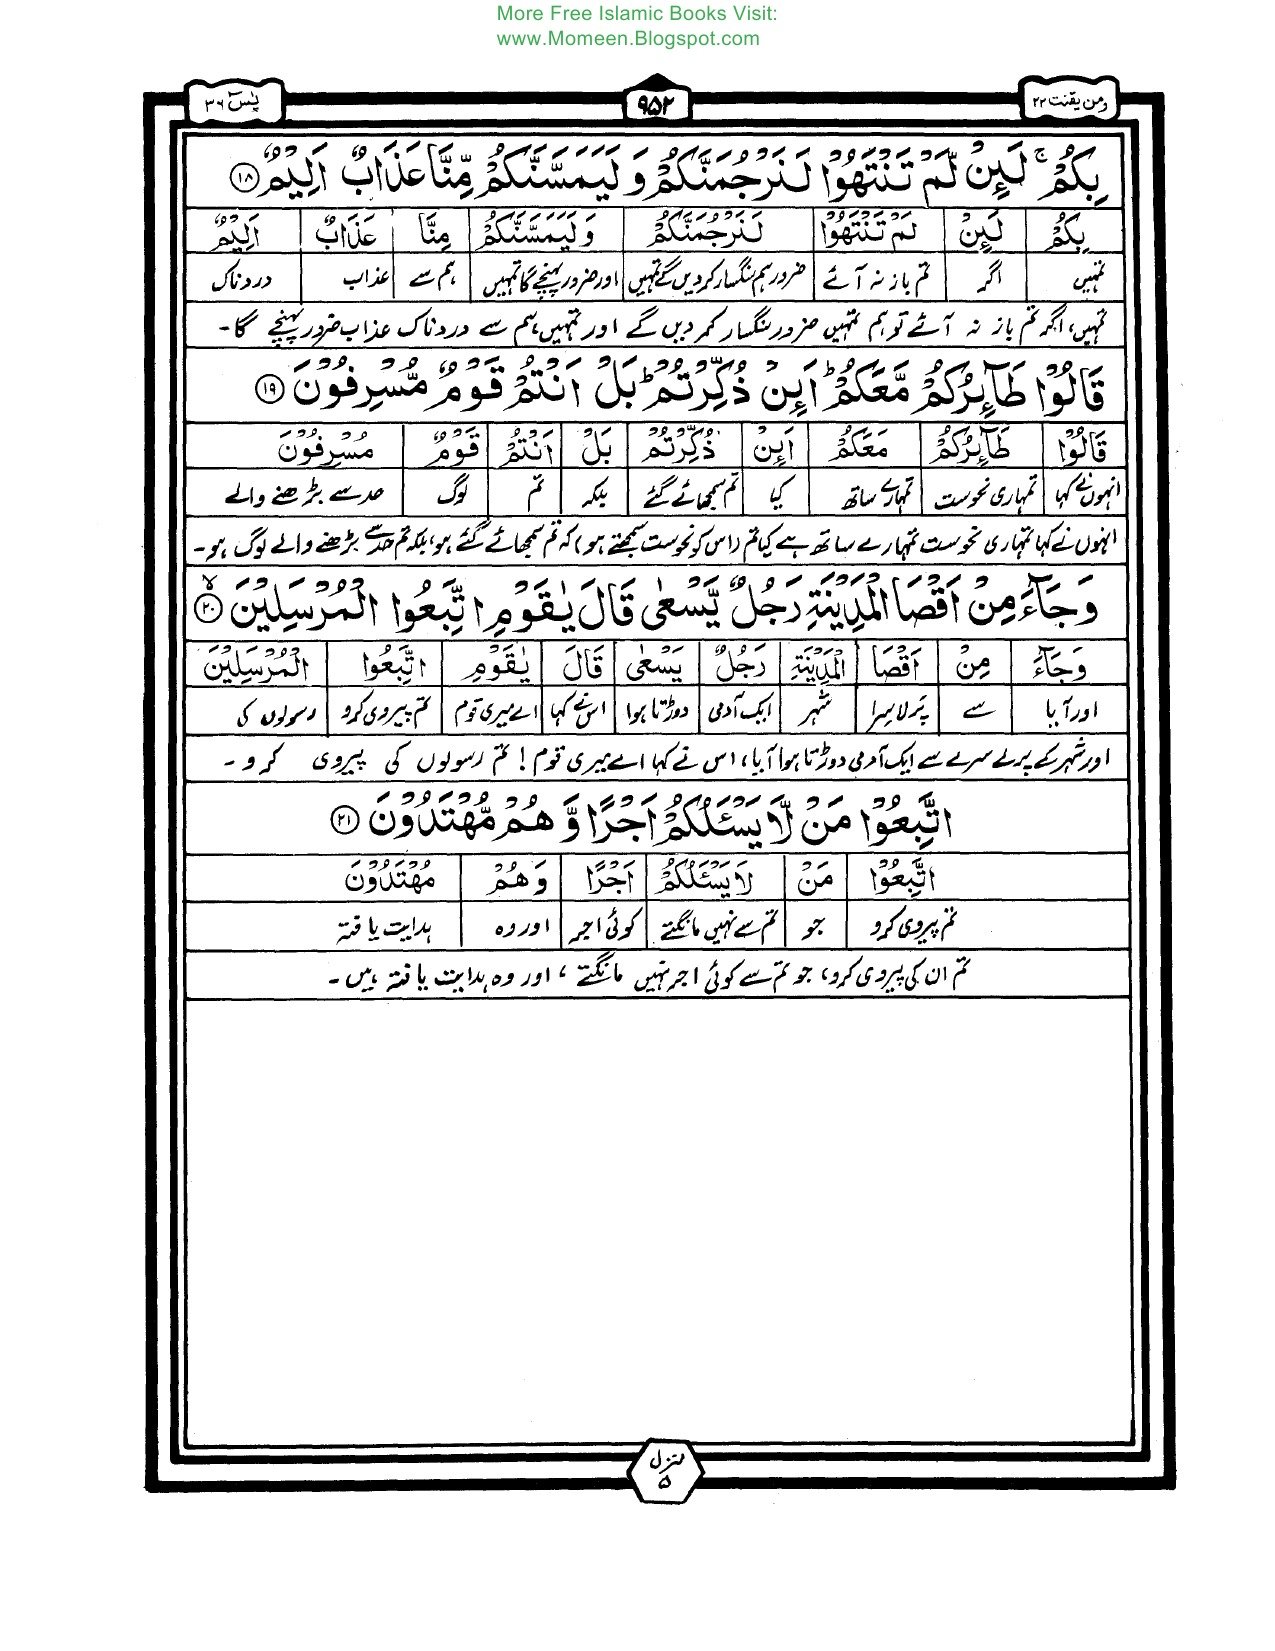 More Free Islamic Books Visit:
www.Momeen.Blogspot.com
ومن یقنت ۲۲ ۹۵۲ یٰس ۳۶
بِكُمْ ۚ لَئِنْ لَّمْ تَنْتَهُوْا لَنَرْجُمَنَّكُمْ وَ لَيَمَسَّنَّكُمْ مِّنَّا عَذَابٌ اَلِيْمٌ ﴿۱۸﴾
بِكُمْ لَئِنْ لَمْ تَنْتَهُوْا لَنَرْجُمَنَّكُمْ وَلَيَمَسَّنَّكُمْ مِنَّا عَذَابٌ اَلِيْمٌ
تمہیں اگر تم باز نہ آئے ضرور ہم سنگسار کر دیں گے تمہیں اور ضرور پہنچے گا تمہیں ہم سے عذاب دردناک
تمہیں، اگر تم باز نہ آئے تو ہم تمہیں ضرور سنگسار کر دیں گے اور تمہیں ہم سے دردناک عذاب ضرور پہنچے گا۔
قَالُوْا طَآئِرُكُمْ مَّعَكُمْ ؕ اَئِنْ ذُكِّرْتُمْ ؕ بَلْ اَنْتُمْ قَوْمٌ مُّسْرِفُوْنَ ﴿۱۹﴾
قَالُوْا طَآئِرُكُمْ مَعَكُمْ اَئِنْ ذُكِّرْتُمْ بَلْ اَنْتُمْ قَوْمٌ مُسْرِفُوْنَ
انہوں نے کہا تمہاری نحوست تمہارے ساتھ کیا تم سمجھائے گئے بلکہ تم لوگ حد سے بڑھنے والے
انہوں نے کہا تمہاری نحوست تمہارے ساتھ ہے کیا تم (اس کو نحوست سمجھتے ہو) کہ تم سمجھائے گئے ہو، بلکہ تم حد سے بڑھنے والے لوگ ہو۔
وَ جَآءَ مِنْ اَقْصَا الْمَدِيْنَةِ رَجُلٌ يَّسْعٰى قَالَ يٰقَوْمِ اتَّبِعُوا الْمُرْسَلِيْنَ ﴿۲۰﴾ ۙ
وَجَآءَ مِنْ اَقْصَا الْمَدِيْنَةِ رَجُلٌ يَسْعٰى قَالَ يٰقَوْمِ اتَّبِعُوا الْمُرْسَلِيْنَ
اور آیا سے پرلا سرا شہر ایک آدمی دوڑتا ہوا اس نے کہا اے میری قوم تم پیروی کرو رسولوں کی
اور شہر کے پرلے سرے سے ایک آدمی دوڑتا ہوا آیا، اس نے کہا اے میری قوم! تم رسولوں کی پیروی کرو۔
اتَّبِعُوْا مَنْ لَّا يَسْـَٔلُكُمْ اَجْرًا وَّ هُمْ مُّهْتَدُوْنَ ﴿۲۱﴾
اتَّبِعُوْا مَنْ لَا يَسْـَٔلُكُمْ اَجْرًا وَهُمْ مُهْتَدُوْنَ
تم پیروی کرو جو تم سے نہیں مانگتے کوئی اجر اور وہ ہدایت یافتہ
تم ان کی پیروی کرو، جو تم سے کوئی اجر نہیں مانگتے، اور وہ ہدایت یافتہ ہیں۔
منزل
۵